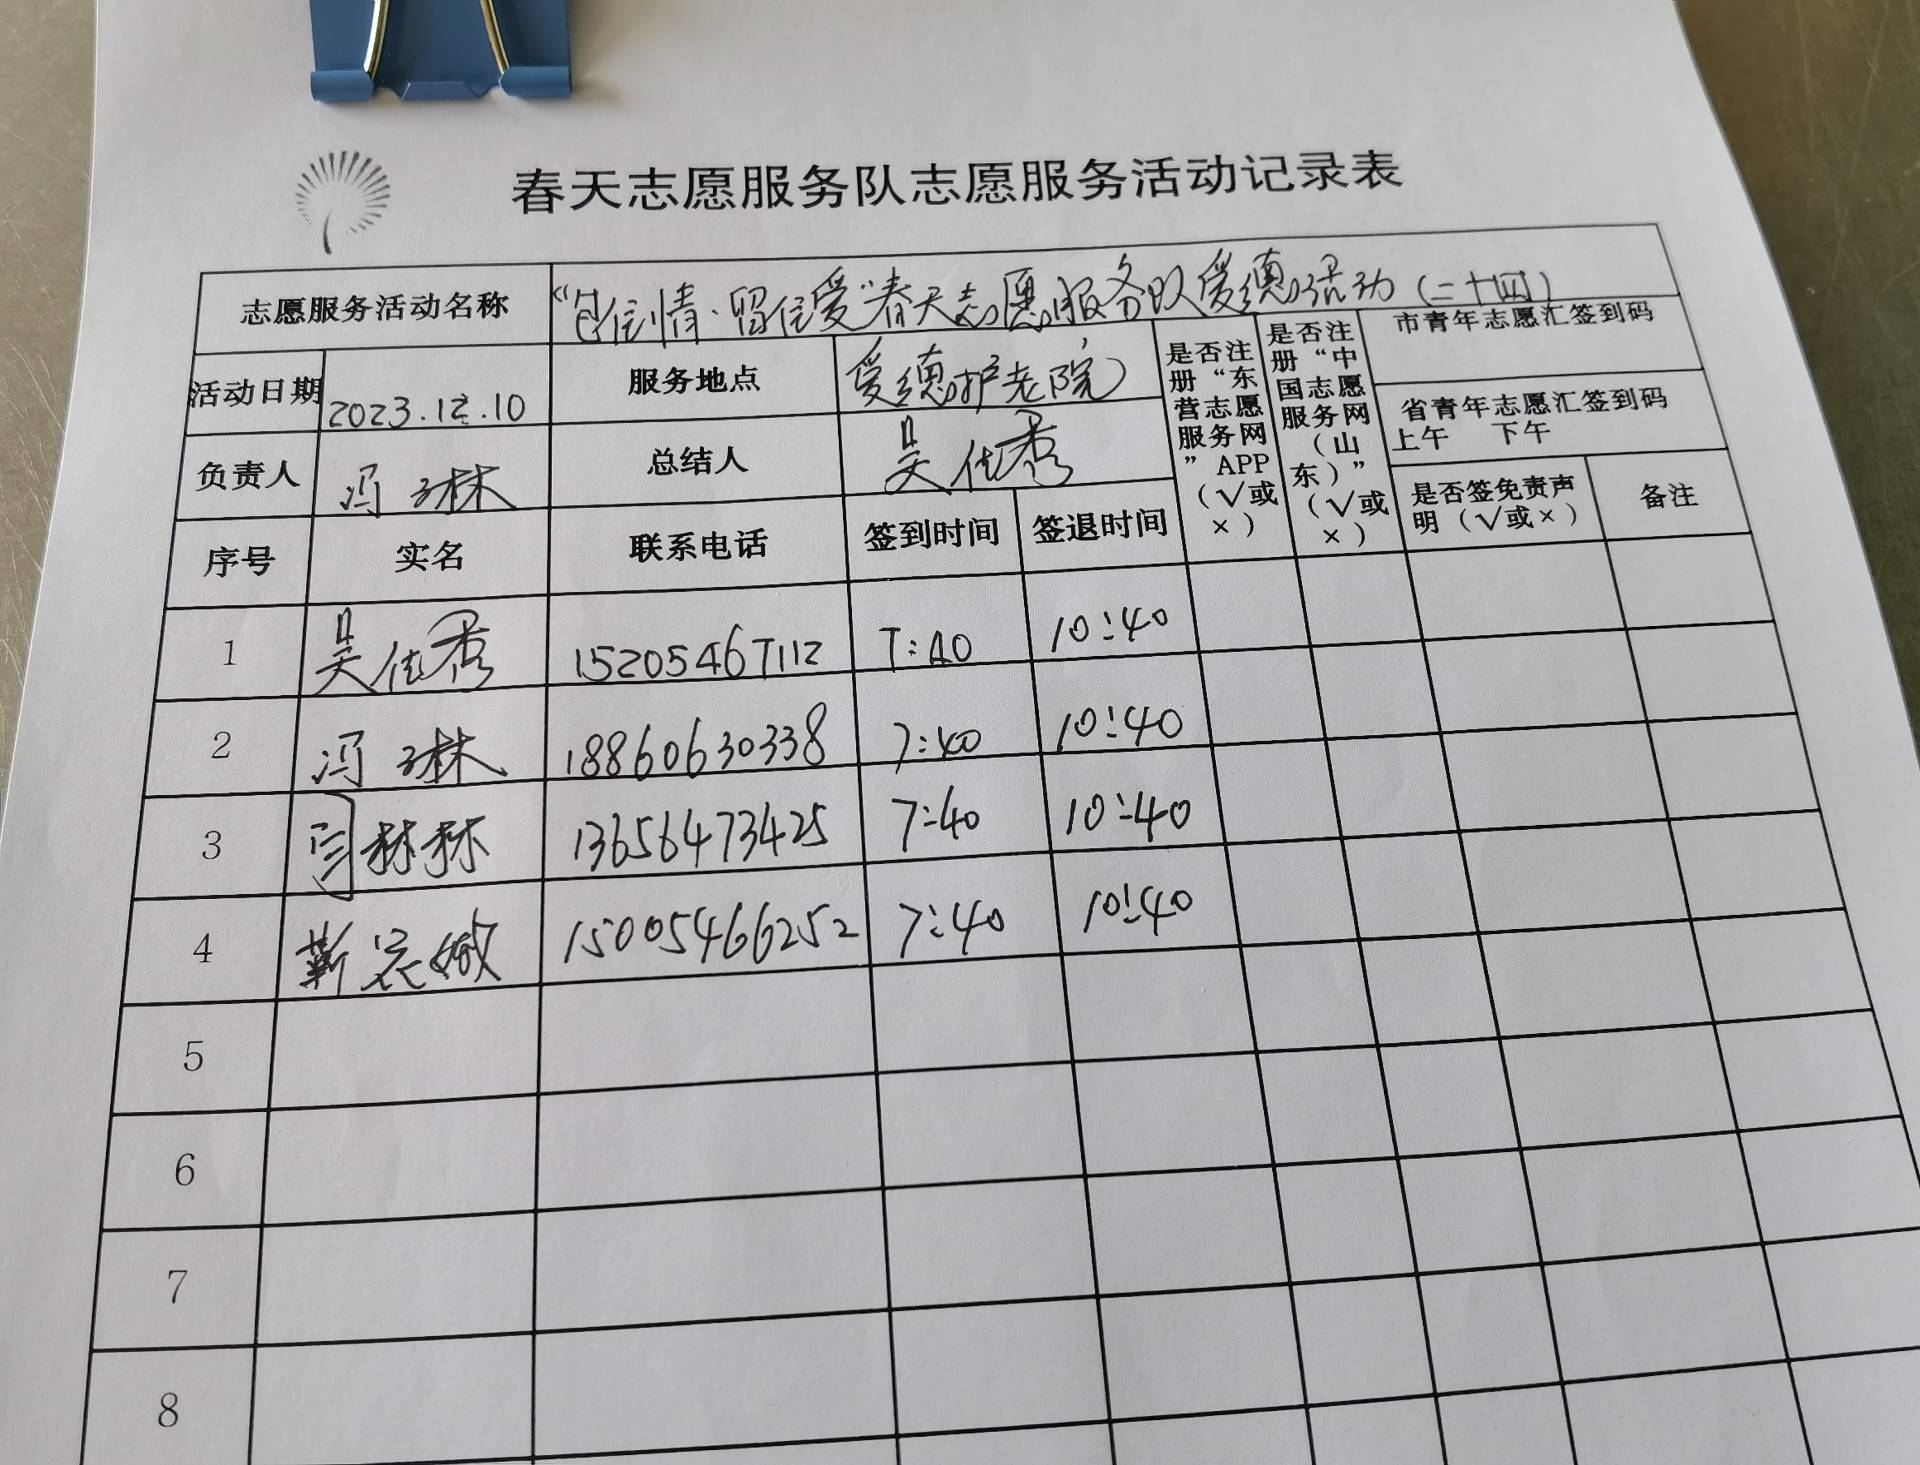 春天志愿服务队志愿服务活动记录表
志愿服务活动名称 “包住情·留住爱”春天志愿服务队爱德活动（二十四）
活动日期 2023.12.10 服务地点 爱德护老院
是否注册“东营志愿服务网”APP（√或×）
是否注册“中国志愿服务网（山东）”（√或×）
市青年志愿汇签到码
省青年志愿汇签到码
上午 下午
负责人 冯琳 总结人 吴佳秀
是否签免责声明（√或×） 备注
序号 实名 联系电话 签到时间 签退时间
1 吴佳秀 15205467112 7:40 10:40
2 冯琳 18860630338 7:40 10:40
3 闫林林 13656473425 7:40 10:40
4 靳 15005466252 7:40 10:40
5
6
7
8